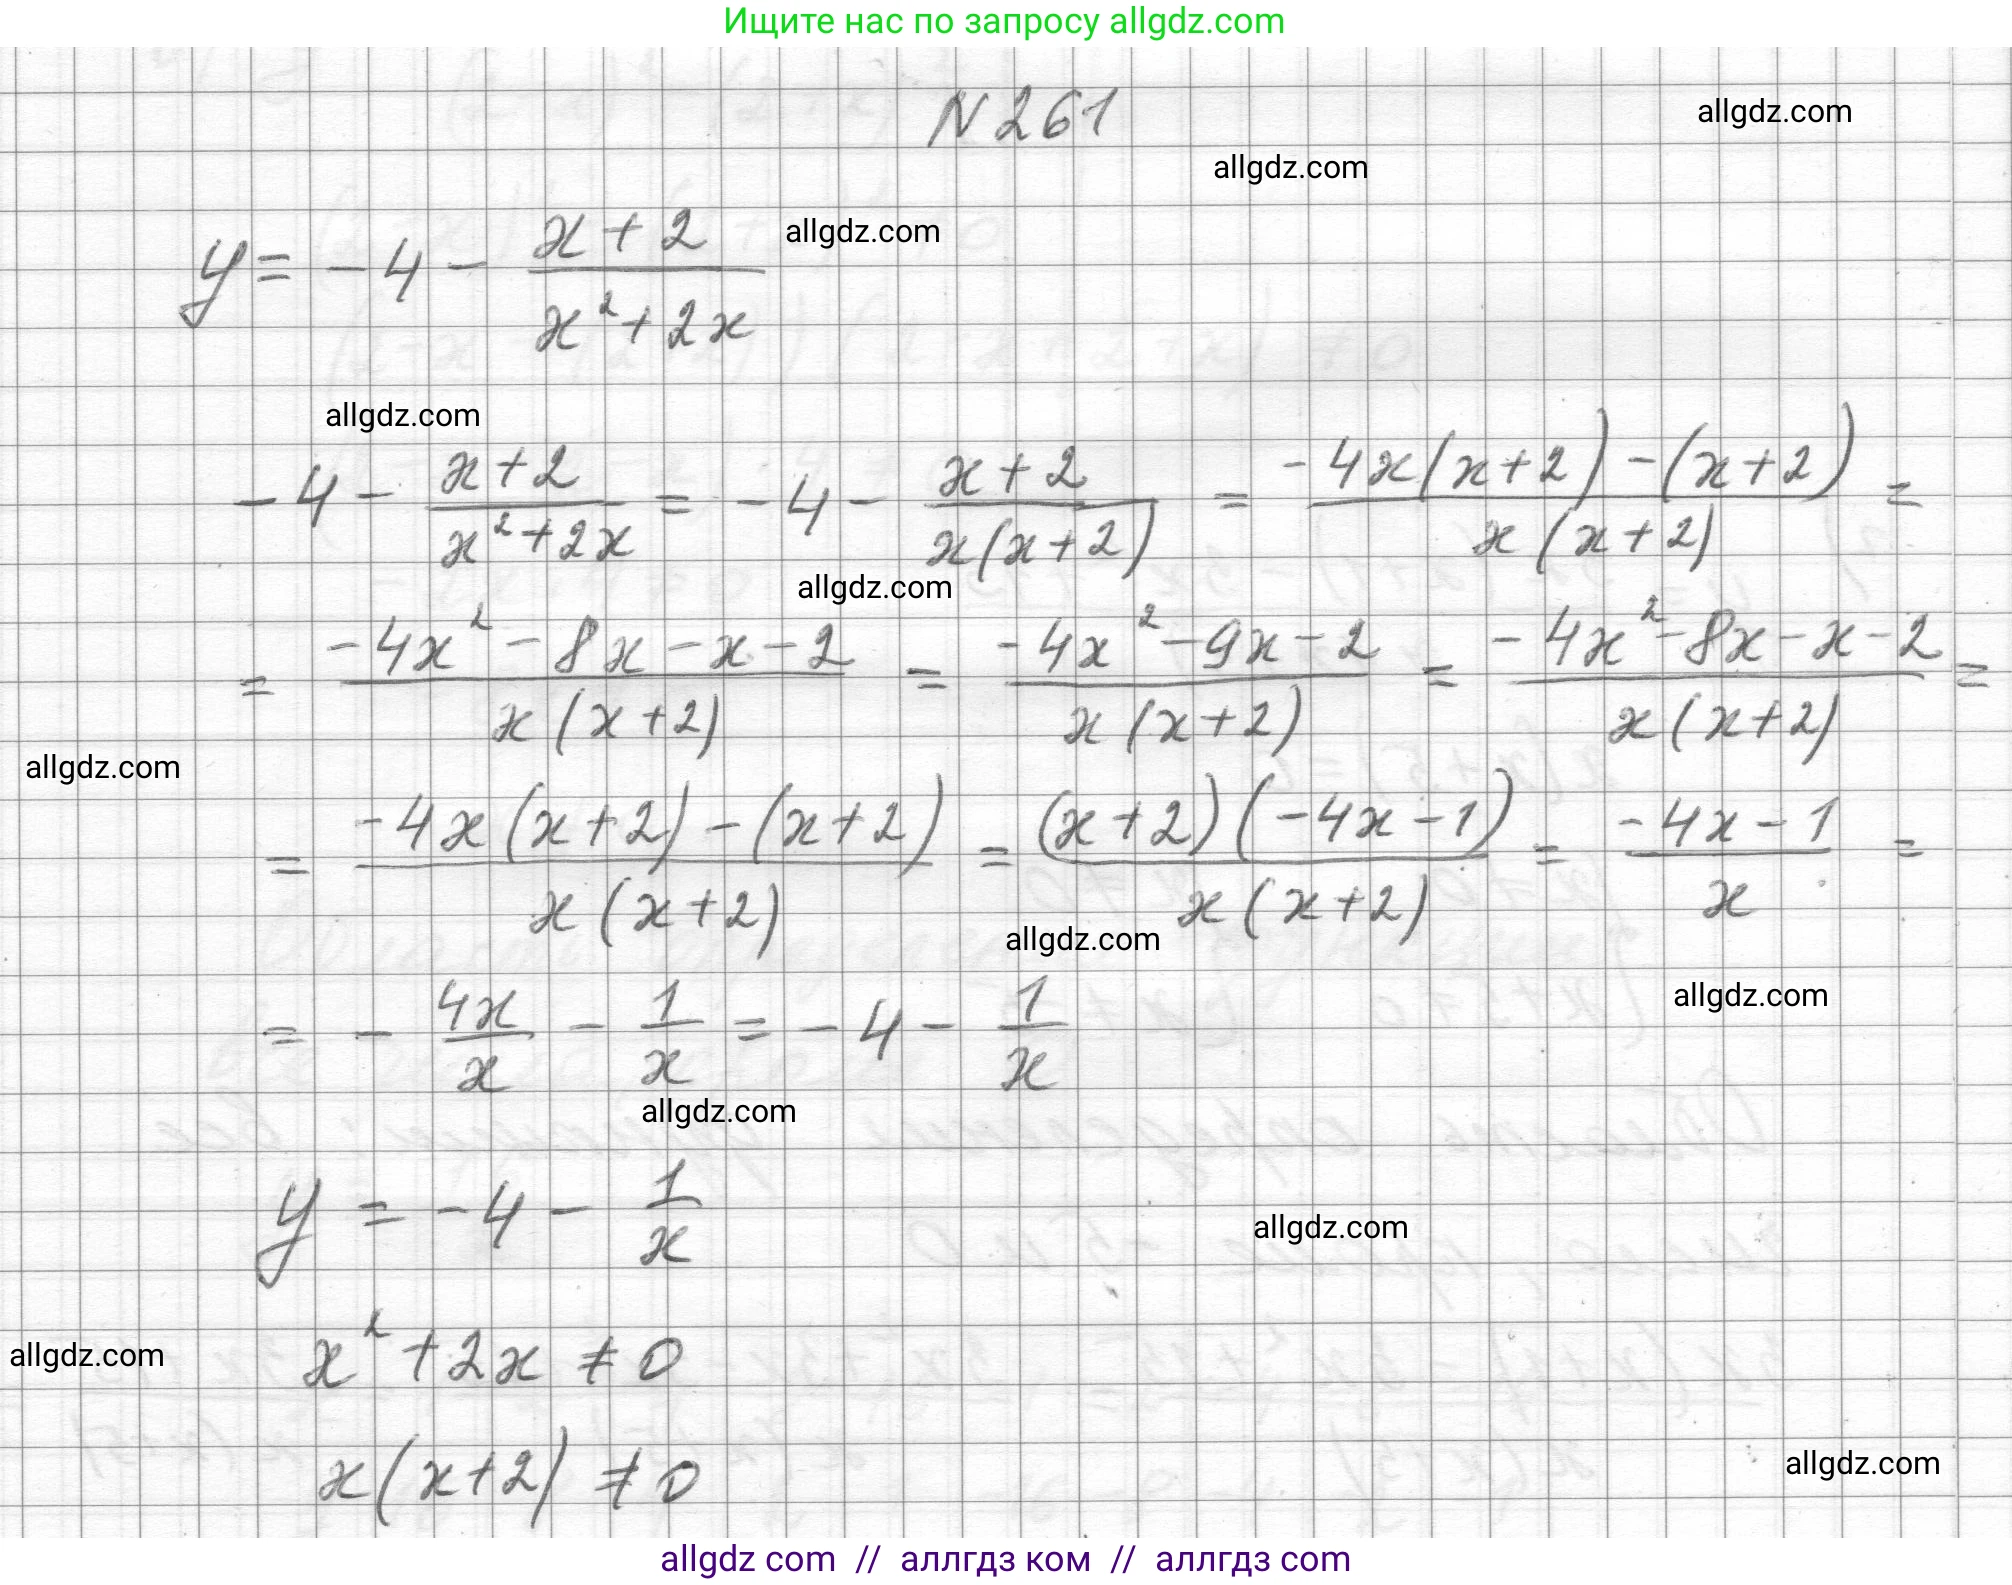 Ищите нас по запросу allgdz.com
N 261
allgdz.com
allgdz.com
y = -4 - (x+2)/(x²+2x)
allgdz.com
allgdz.com
-4 - (x+2)/(x²+2x) = -4 - (x+2)/(x(x+2)) = (-4x(x+2)-(x+2))/(x(x+2)) =
allgdz.com
= (-4x²-8x-x-2)/(x(x+2)) = (-4x²-9x-2)/(x(x+2)) = (-4x²-8x-x-2)/(x(x+2)) =
allgdz.com
= (-4x(x+2)-(x+2))/(x(x+2)) = ((x+2)(-4x-1))/(x(x+2)) = (-4x-1)/x =
allgdz.com
allgdz.com
= - 4x/x - 1/x = -4 - 1/x
allgdz.com
y = -4 - 1/x
allgdz.com
x²+2x ≠ 0
allgdz.com
x(x+2) ≠ 0
allgdz.com
allgdz com // аллгдз ком // аллгдз com